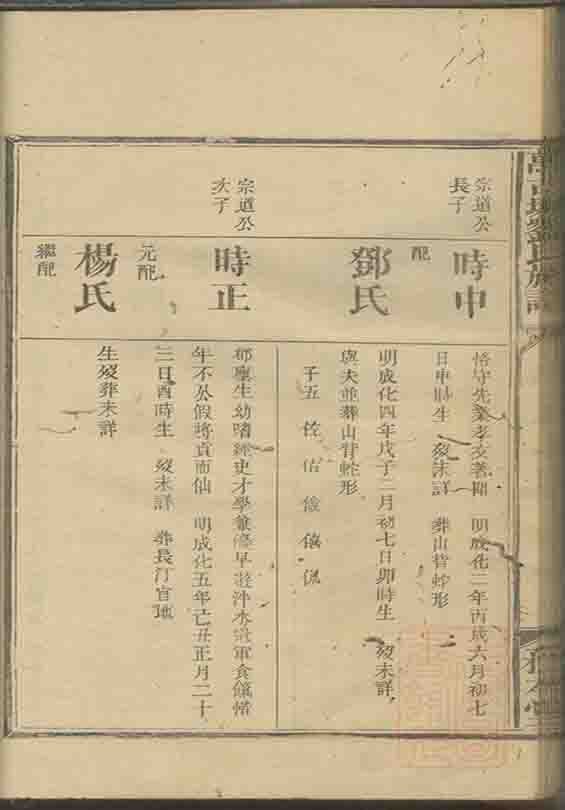 宗道公
長子
時中
恪守先業孝友著聞 明成化二年丙戌六月初七
日申時生 歿未詳 葬山背蛇形
配
鄧氏
明成化四年戊子二月初七日卯時生 歿未詳
與夫並葬山背蛇形
子五 佐 佑 儉 僖 侃
宗道公
次子
時正
郡廩生幼嗜經史才學兼優早遊泮水 軍食餼惜
年不公假將貢而仙 明成化五年己丑正月二十
三日酉時生 歿未詳 葬長汀官地
元配
楊氏
生歿葬未詳
繼配
氏族譜